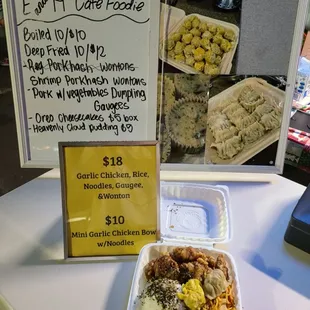 Cafe Foodie
Boiled 10/$10
Deep Fried 10/$12
- Reg Porkhash Wontons
Shrimp Porkhash Wontons
- Pork w/vegetables Dumpling
Gaugees
- Oreo Cheesecakes $5 box
- Heavenly Cloud Pudding $9
$18
Garlic Chicken, Rice,
Noodles, Gaugee,
&Wonton
$10
Mini Garlic Chicken Bowl
w/Noodles